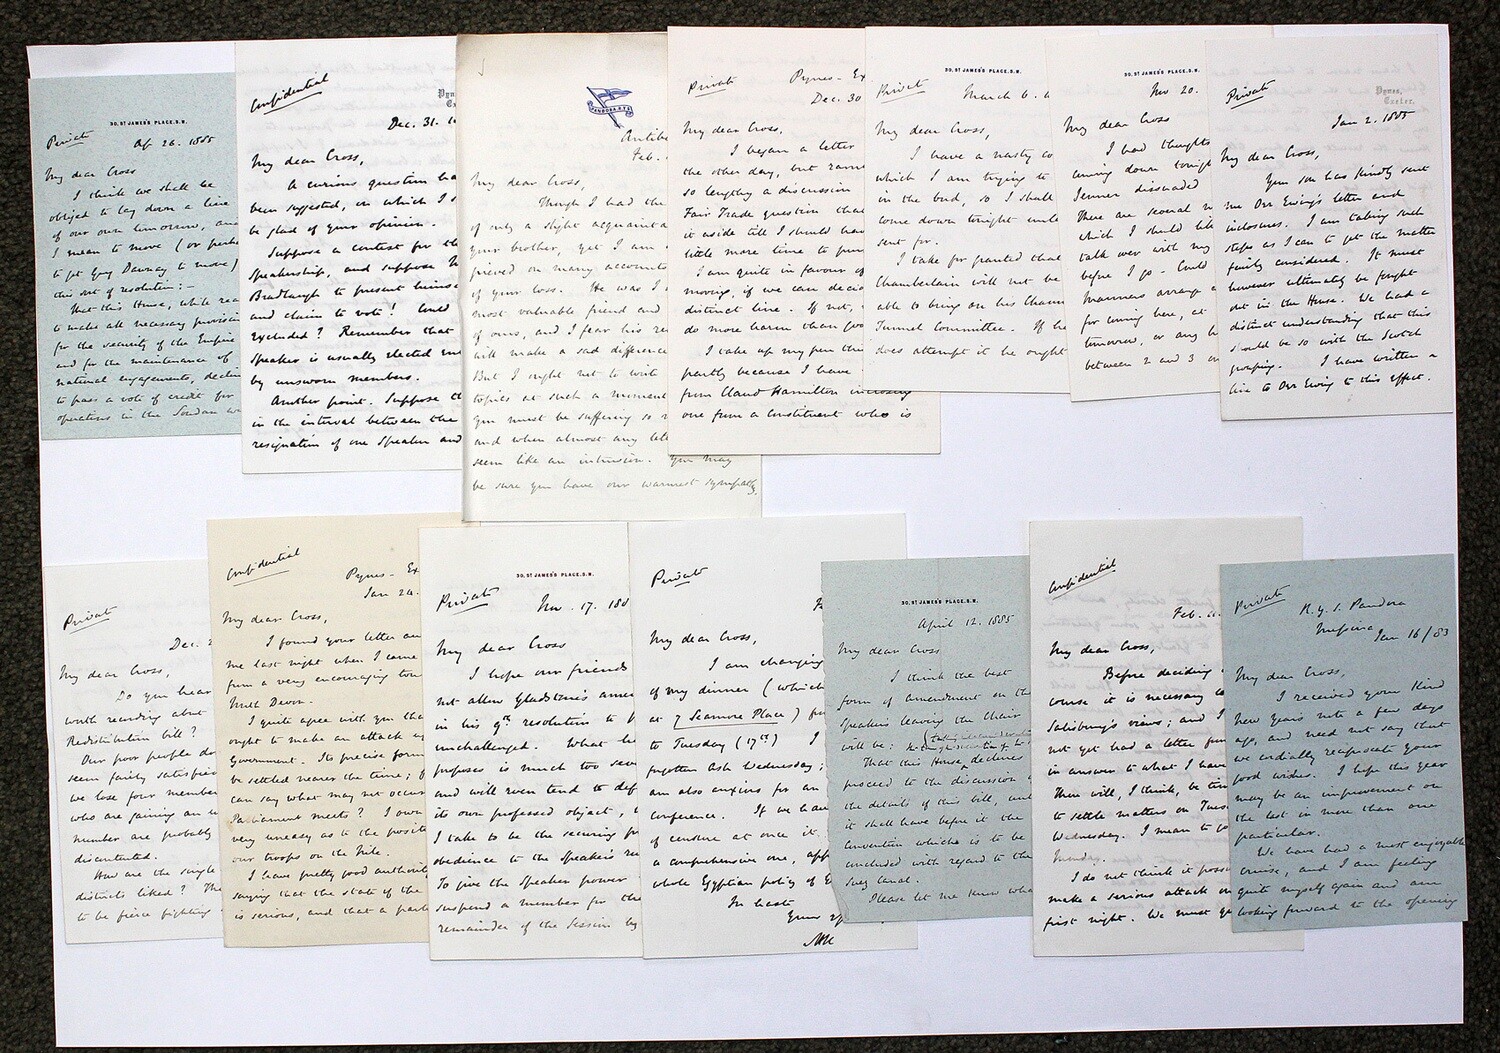 30, ST JAMES'S PLACE, S.W.
Private
Ap 26. 1885
My dear Cross
I think we shall be
obliged to lay down a line
of our own tomorrow, and
I mean to move (or perh
to get Guy Dawnay to move)
this set of resolution:-
That this House, while rea
to make all necessary provisi
for the security of the Empire
and for the maintenance of
national engagements, declin
to pass a vote of credit for
operations in the Soudan w
Confidential
Pynes
Ex
Dec. 31. 1
My dear Cross,
A curious question ha
been suggested, on which I s
be glad of your opinion.
Suppose a contest for th
Speakership, and suppose
Bradlaugh to present himse
and claim to vote! Could
excluded? Remember that
Speaker is usually elected
by unsworn members.
Another point. Suppose th
in the interval between the
resignation of one Speaker and
PANDORA R.Y.S
Antibe
Feb.
My dear Cross,
Though I had the
of only a slight acquainta
your brother, yet I am
grieved on many accounts
of your loss. He was
most valuable friend and
of ours, and I fear his re
will make a sad difference
But I ought not to write
topics at such a moment
you must be suffering so
and when almost any let
seem like an intrusion. You may
be sure you have our warmest sympathy.
Private
Pynes - Ex
Dec. 30
My dear Cross,
I began a letter
the other day, but ran
so lengthy a discussion
Fair Trade question that
it aside till I should hav
little more time to
I am quite in favour of
moving, if we can deci
distinct line. If not,
do more harm than goo
I take up my pen thi
partly because I have
from Claud Hamilton inclosing
one from a constituent who is
30, ST JAMES'S PLACE, S.W.
Private
March 6.
My dear Cross,
I have a nasty co
which I am trying to
in the bud, so I shall
come down tonight unle
sent for.
I take for granted that
Chamberlain will not be
able to bring on his Chann
Tunnel Committee. If he
does attempt it he ought
30, ST JAMES'S PLACE, S.W.
Nov 20.
My dear Cross
I had thoughts
coming down tonigh
Jenner dissuaded
There are several
which I should lik
talk over with
before I go. Could
arrange
for coming here, at
tomorrow, or any h
between 2 and 3 or
Private
Pynes,
Exeter.
Jan 2. 1885
My dear Cross,
Your son has kindly sent
me Orr Ewing's letter and
inclosures. I am taking such
steps as I can to get the matter
fairly considered. It must
however ultimately be fought
out in the House. We had a
distinct understanding that this
should be so with the Scotch
grouping. I have written a
line to Orr Ewing to this effect.
Private
Dec. 2
My dear Cross,
Do you hear
worth recording about
Redistribution bill?
Our poor people do
seem fairly satisfie
we lose four member
who are gaining an
number are probably
discontented.
How are the single
districts liked? The
to be fierce fighting
Confidential
Pynes - Ex
Jan 24.
My dear Cross,
I found your letter
me last night when I came
from a very encouraging tou
North Devon.
I quite agree with you tha
ought to make an attack
Government. Its precise form
be settled nearer the time; f
can say what may not occur
Parliament meets? I own
very uneasy as to the positi
our troops on the Nile.
I have pretty good authorit
saying that the state of the
is serious, and that a part
30, ST JAMES'S PLACE, S.W.
Private
Nov. 17. 188
My dear Cross
I hope our friends
not allow Gladstone's amen
in his 9th resolution to
unchallenged. What he
proposes is much too sev
and will even tend to def
its own professed object,
I take to be the securing
obedience to the Speaker's
To give the Speaker power
suspend a member for the
remainder of the Session by
Private
My dear Cross,
I am changing
of my dinner (which
at 7 Seamore Place) f
to Tuesday (17th) I
forgotten Ash Wednesday;
am also anxious for an
conference. If we have
of censure at once it
a comprehensive one, app
whole Egyptian policy of
In haste
Yours
30, ST JAMES'S PLACE, S.W.
April 12. 1885
My dear Cross
I think the best
form of amendment on the
Speaker's leaving the Chair
will be:
That this House declines
proceed to the discussion
the details of this bill, unt
it shall have before it the
Convention which is to be
concluded with regard to the
Suez Canal.
Please let me know wha
Confidential
Feb.
My dear Cross,
Before deciding
course it is necessary to
Salisbury's views; and I
not yet had a letter from
in answer to what I have
There will, I think, be tim
to settle matters on Tues
Wednesday. I mean to go
Monday.
I do not think it poss
make a serious attack on
first night. We must
Private
R.Y.S. Pandora
Messina
Jan 16/83
My dear Cross,
I received your kind
New Year's note a few days
ago, and need not say that
we cordially reciprocate your
good wishes. I hope this year
may be an improvement on
the last in more than one
particular.
We have had a most enjoyable
cruise, and I am feeling
quite myself again and am
looking forward to the opening